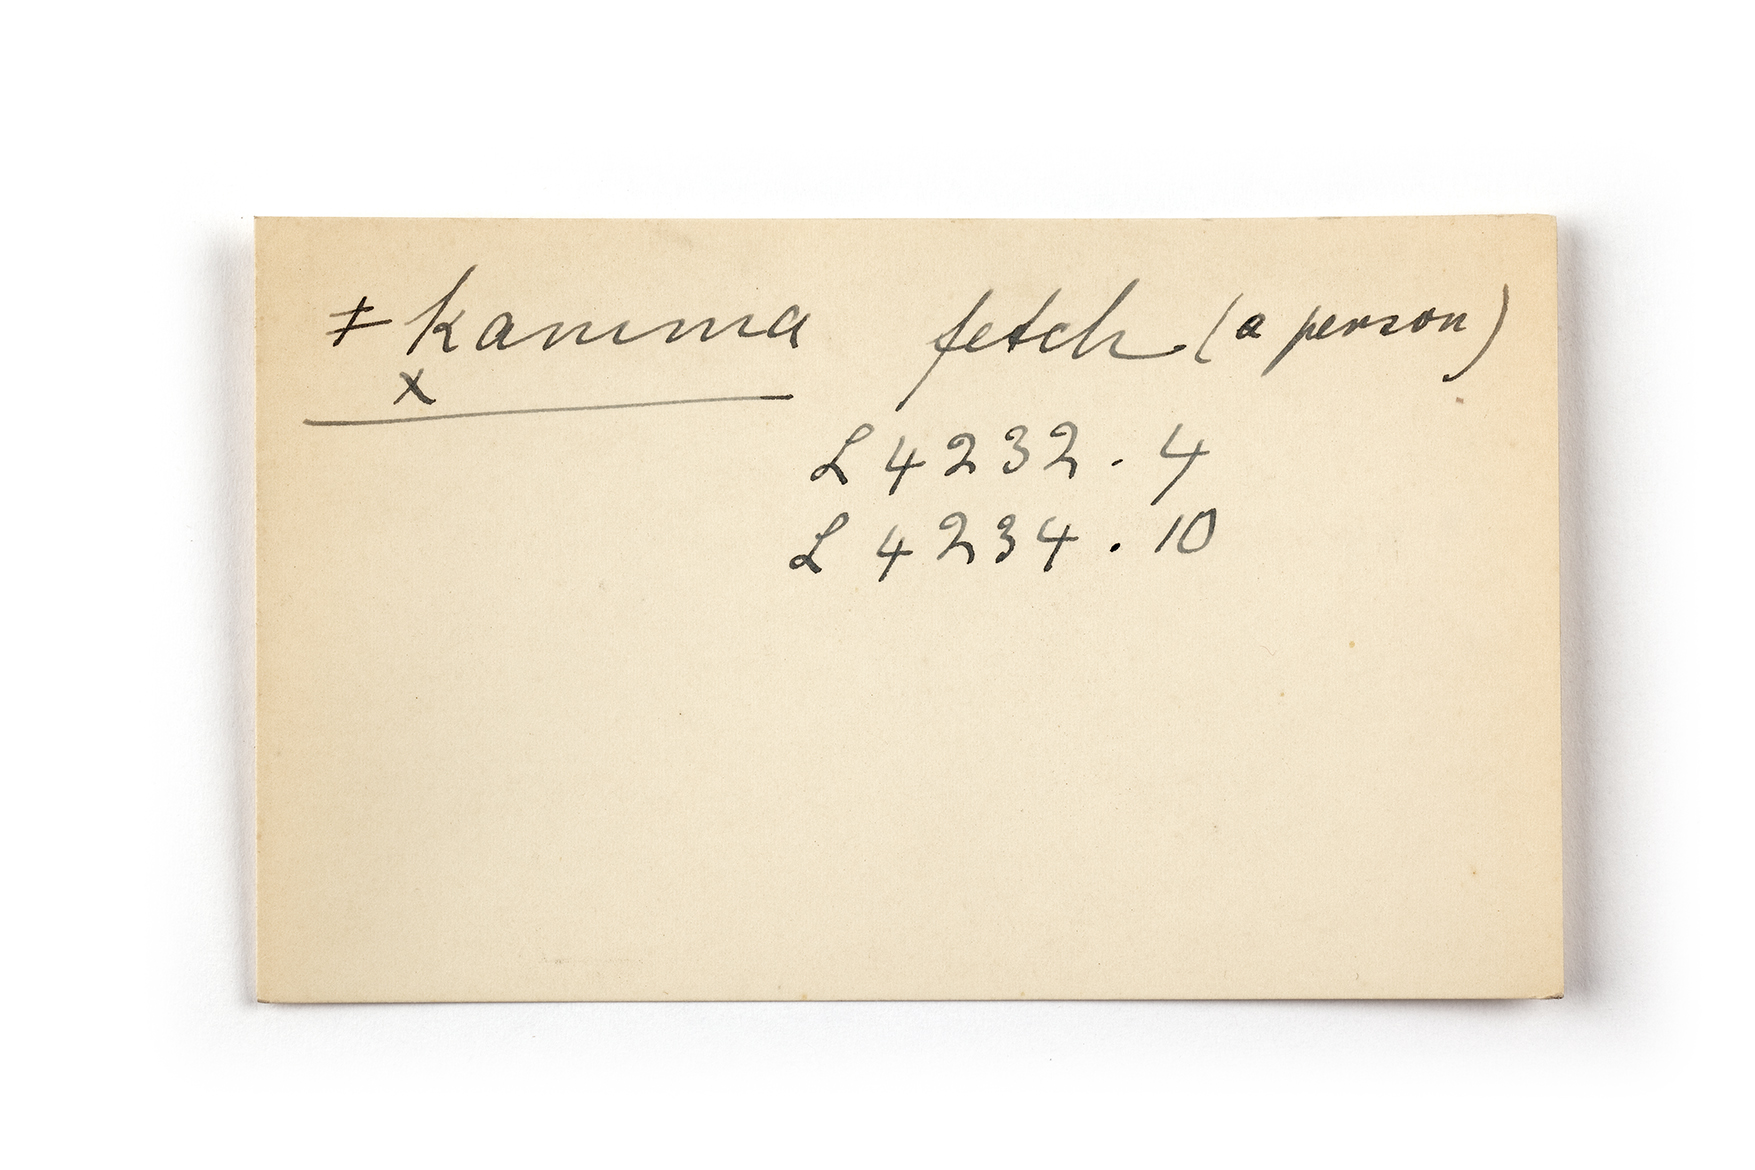 ǂkamma fetch (a person)
x
L 4232 . 4
L 4234 . 10